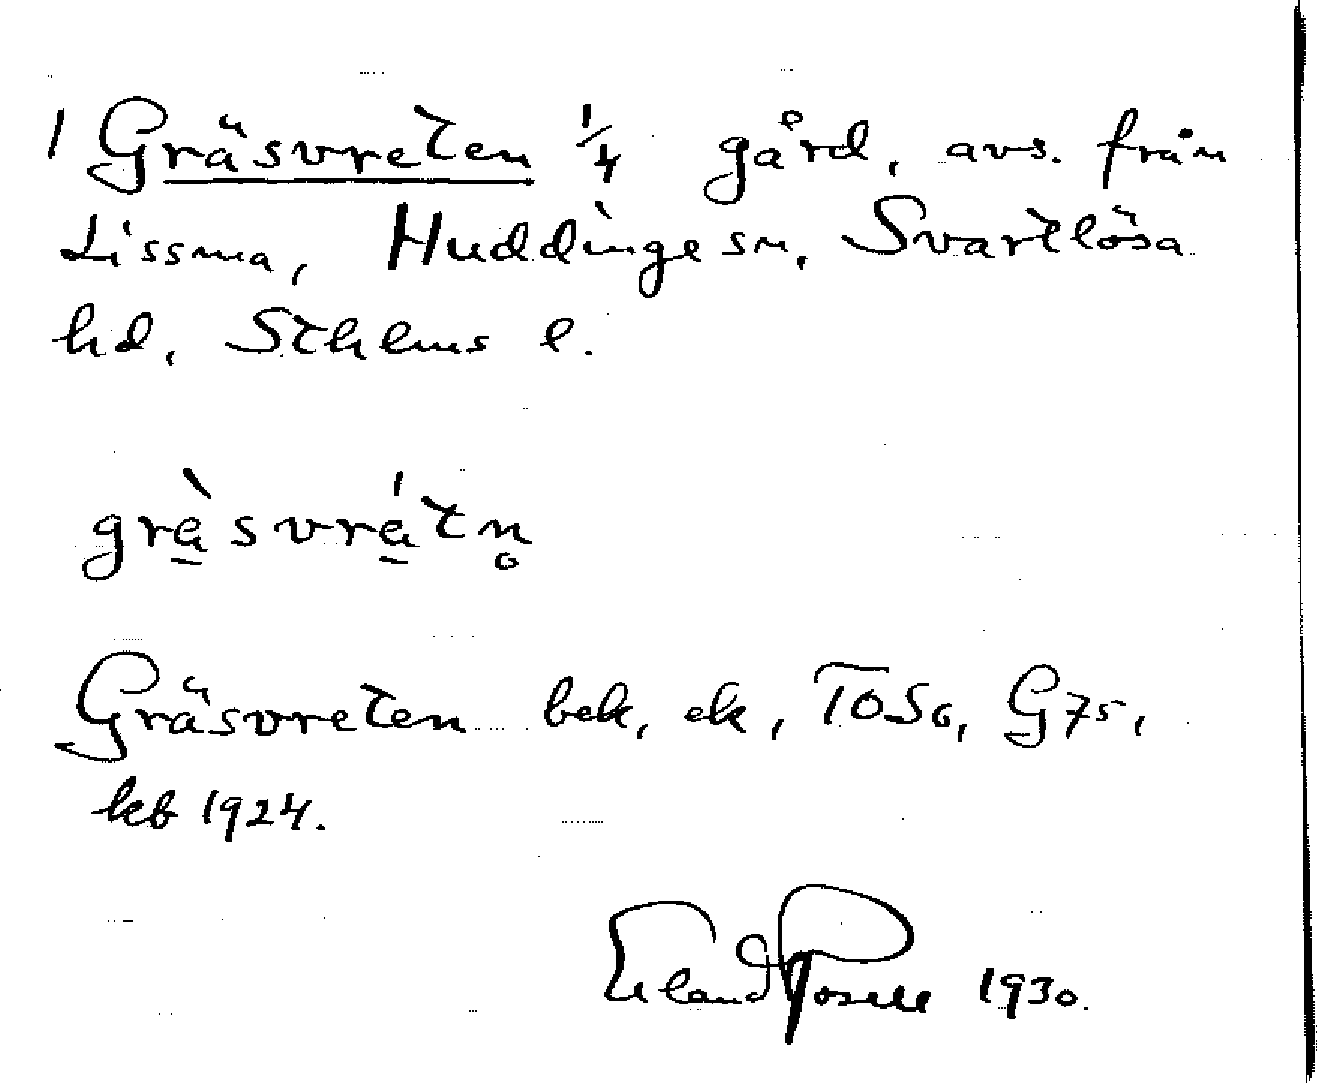 1 Gräsvreten 1/4 gård, avs. från
Lissma, Huddinge sn, Svartlösa
hd, Sthlms l.
grà̱svrá̱tn̥
Gräsvreten bek, ek, TOS6, G75,
kb 1924.
Erland Rosell 1930.